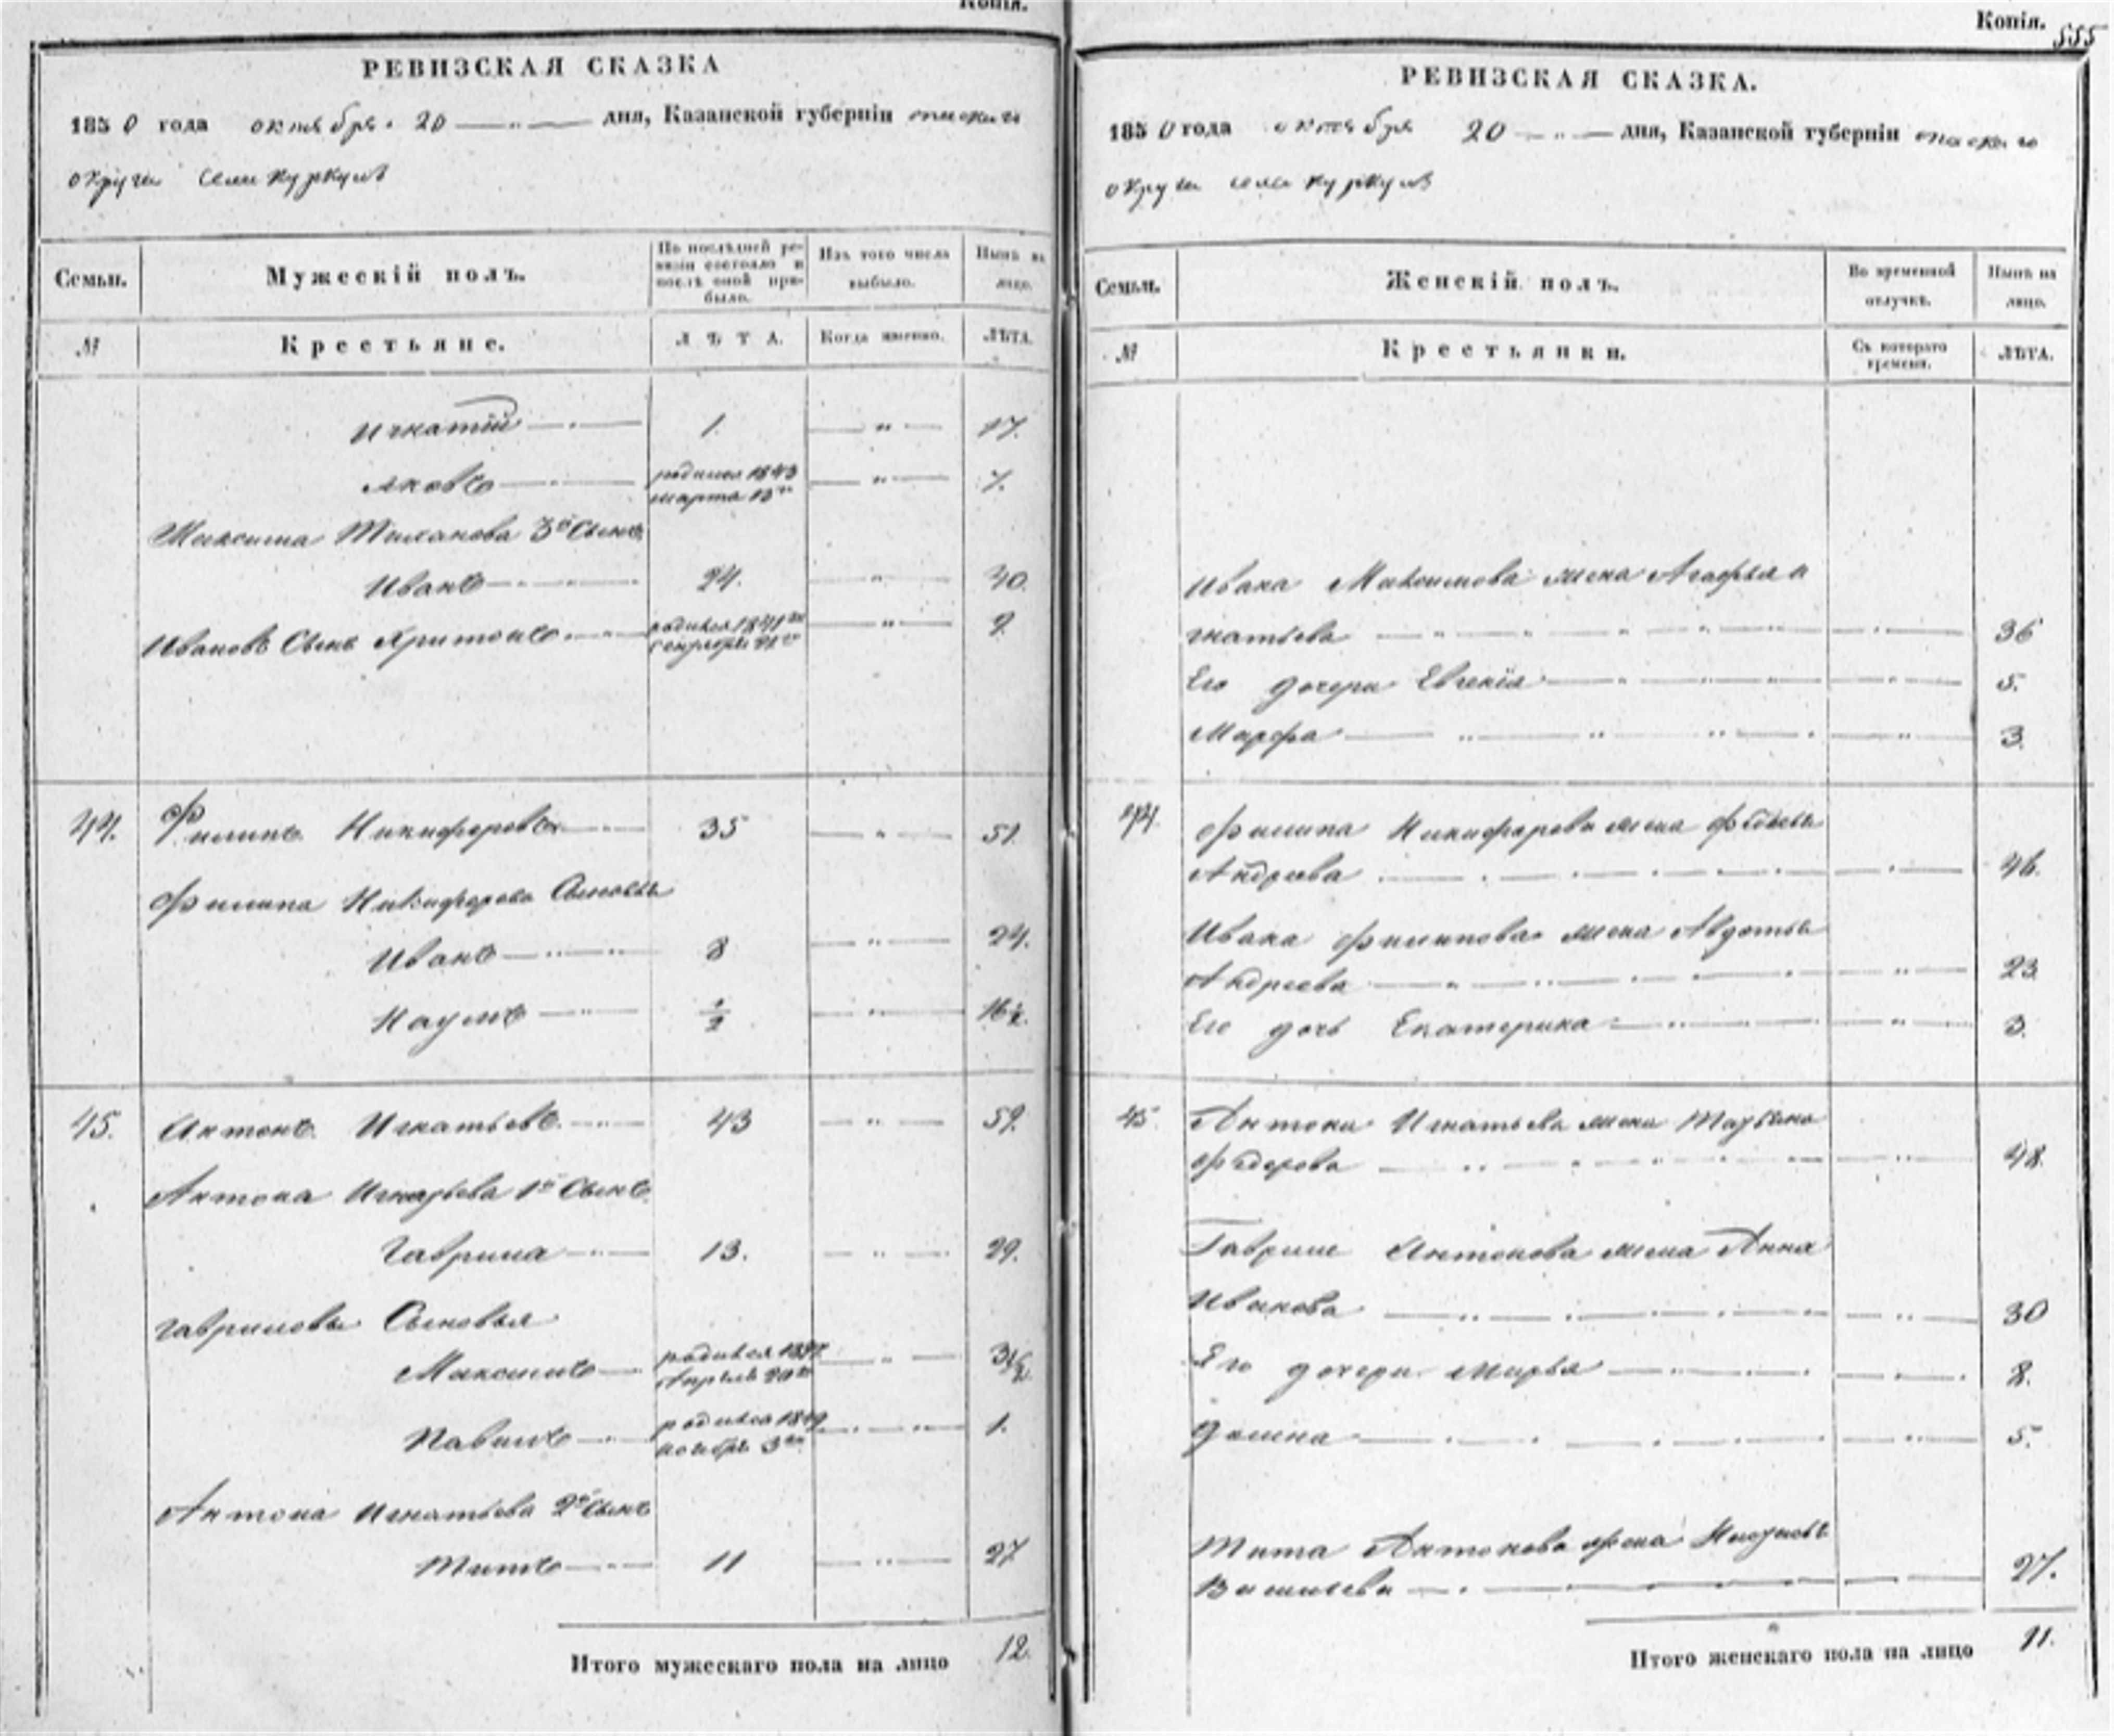 Копія.
РЕВИЗСКАЯ СКАЗКА
1850 года октября 20 дня, Казанской губерніи спаскаго
округи села куркуль
Семьи.
Мужескій полъ.
По послѣдней ре-
визіи состояло и
послѣ оной при-
было.
Изъ того числа
выбыло.
Нынѣ на
лицо.
№
Крестьяне.
ЛѢТА.
Когда именно.
ЛѢТА.
Игнатій 1. " 17.
Яковъ родился 1843 марта 13го " 7.
Максима 3й Сынъ
Иванъ 24. " 40.
Ивановъ Сынъ Хритонъ родился 1841го " 9.
44. Филипъ Никифоровъ 35 " 51.
Филипа Никифорова Сыновья
Иванъ 8 " 24.
Наумъ 1/2 " 16 1/2.
45. Антонъ Игнатьевъ 43 " 59.
Антона Игнатьева 1й Сынъ
Гаврила 13. " 29.
Гавриловы Сыновья
Максимъ родился Апреля 20го "
Павилъ родился 1849 ноября 3го " 1.
Антона Игнатьева 2й Сынъ
Титъ 11 " 27
Итого мужескаго пола на лицо 12.
Копія.
555
РЕВИЗСКАЯ СКАЗКА.
1850 года октября 20 дня, Казанской губерніи спаскаго
округи села куркуль
Семьи.
Женскій полъ.
Во временной
отлучкѣ.
Нынѣ на
лицо.
№
Крестьянки.
Съ котораго
времени.
ЛѢТА.
Ивана Максимова жена Агафья и
гнатьева " 36
Его дочери Евгенія " 5.
Марфа " 3.
44. Филипа Никифорова жена
Андреева " 46.
Ивана Филипова жена Авдотья
Андреева " 23
Его дочь Екатерина " 3.
45. Антона Игнатьева жена Татьяна
Федорова " 48.
Гаврилы Антонова жена Анна
Иванова " 30
Его дочери Марья 8.
Домна " 5.
Тита Антонова жена
Васильева 27.
Итого женскаго пола на лицо 11.